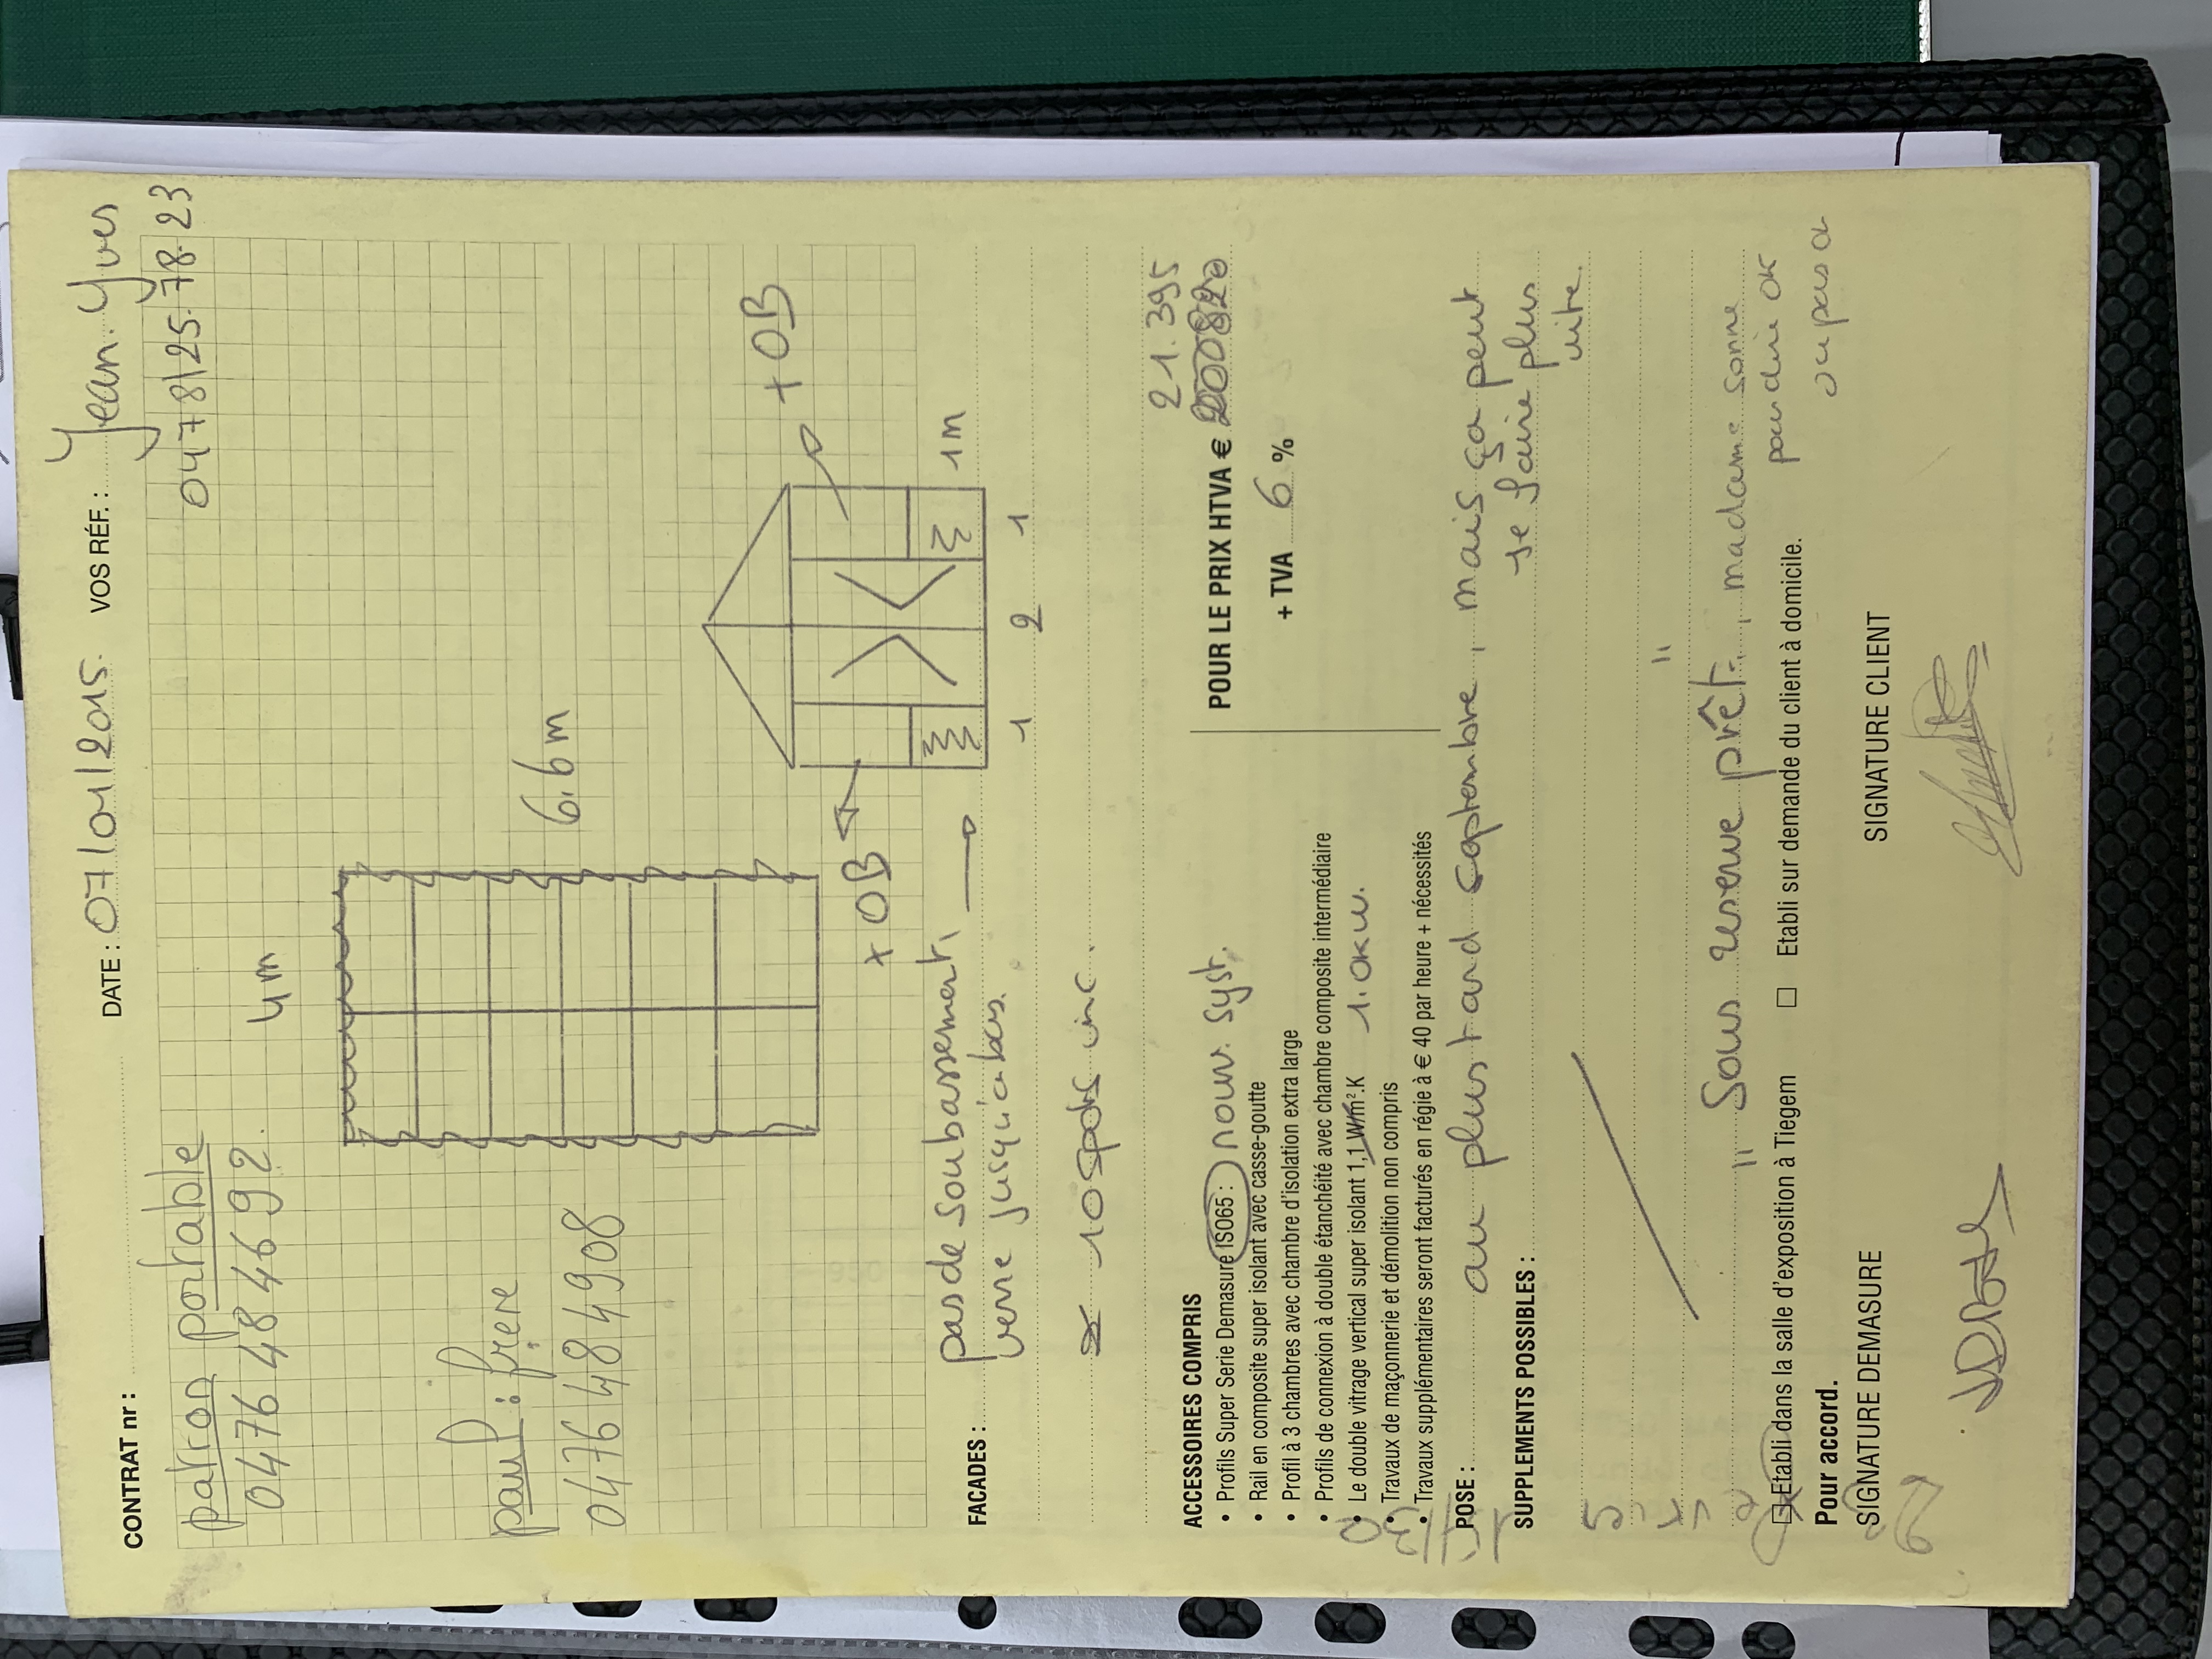 CONTRAT nr : DATE : 07/04/2015. VOS RÉF. : Jean-Yves
0478/25.78.23
patron portable
0476 48 46 92.
4m
6,6m
paul : frere
0476 48 49 08
+OB
+OB
1m
1 2 1
FACADES : pas de soubassement,
verre jusqu'a bas.
10 spots inc.
21.395
ACCESSOIRES COMPRIS
POUR LE PRIX HTVA €
+ TVA 6 %
• Profils Super Serie Demasure ISO65 : nouv. syst.
• Rail en composite super isolant avec casse-goutte
• Profil à 3 chambres avec chambre d'isolation extra large
• Profils de connexion à double étanchéité avec chambre composite intermédiaire
• Le double vitrage vertical super isolant 1,1 W/m².K 1.0 KW.
• Travaux de maçonnerie et démolition non compris
• Travaux supplémentaires seront facturés en régie à € 40 par heure + nécessités
POSE : au plus tard september, mais ça peut
se faire plus
vite.
SUPPLEMENTS POSSIBLES :
" Sous reserve prêt. ", madame sonne
pour dire OK
ou pas
Etabli dans la salle d'exposition à Tiegem Etabli sur demande du client à domicile.
Pour accord.
SIGNATURE DEMASURE SIGNATURE CLIENT